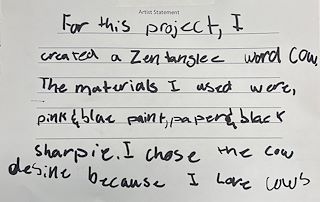 Artist Statement
For this project, I
created a Zentanglee word Cow.
The materials I used were,
pink & blue paint, paper & black
sharpie. I chose the cow
desine because I love cows